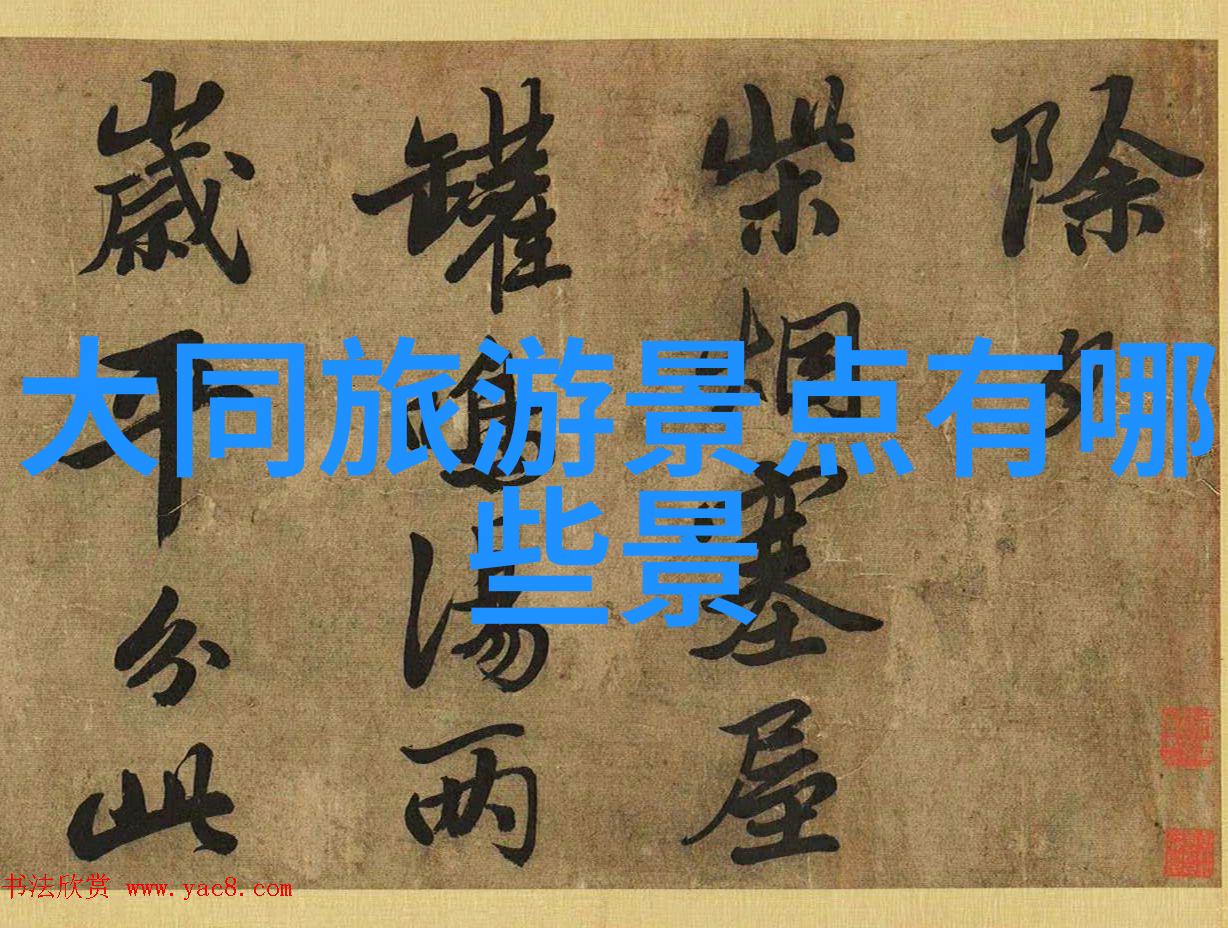 大同旅游景点有哪
些景
除夕
柴烟塞屋
罐湯两
歲平分此
书法欣赏 www.yac8.com